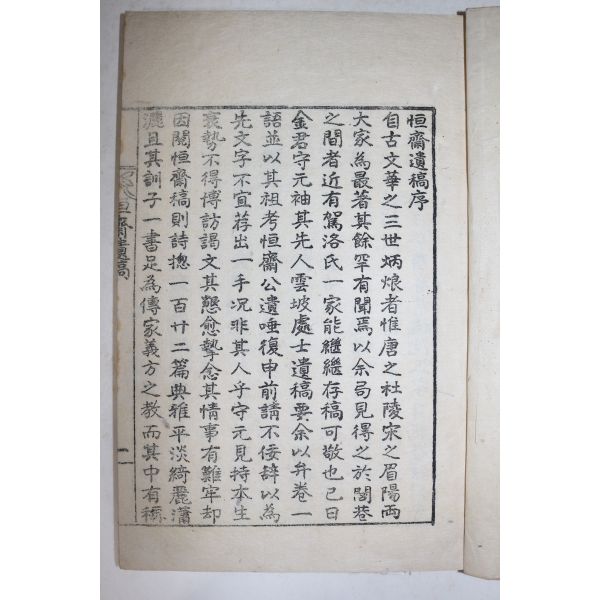 恒齋遺稿序
自古文華之三世炳烺者惟唐之杜陵宋之眉陽兩
大家為最著其餘罕有聞焉以余局見得之於閭巷
之間者近有駕洛氏一家能繼繼存稿可敬也已日
金君守元袖其先人雲坡處士遺稿要余以弁卷一
語並以其祖考恒齋公遺唾復申前請不佞辭以為
先文字不宜荐出一手况非其人乎守元見持本生
衰勢不得博訪謁文其懇愈摯念其情事有難牢却
因閱恒齋稿則詩揔一百廿二篇典雅平淡綺麗瀟
灑且其訓子一書足為傳家義方之教而其中有稱
齋遺稿